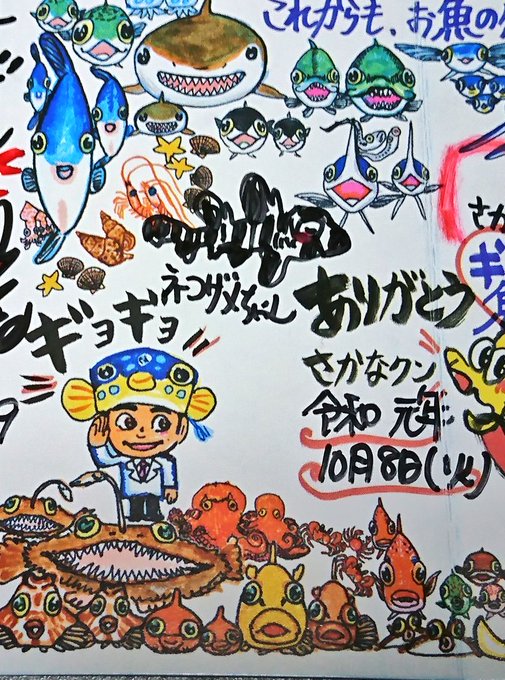 これからも、お魚の
ギョギョ
ネコザメちゃん
ありがとう
さかなクン
令和元年
10月8日(火)
さか
ギ
魚